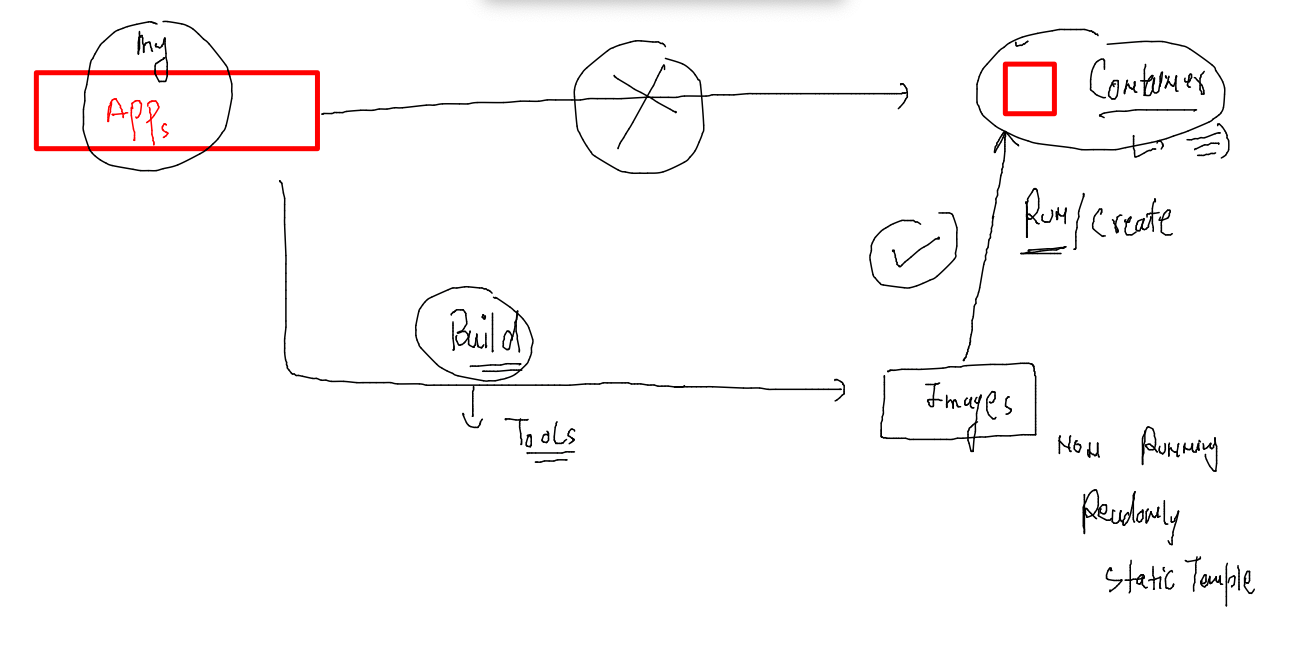 My
Apps
Container
Run/Create
Build
Tools
Images
Non Running
Readonly
Static Temple